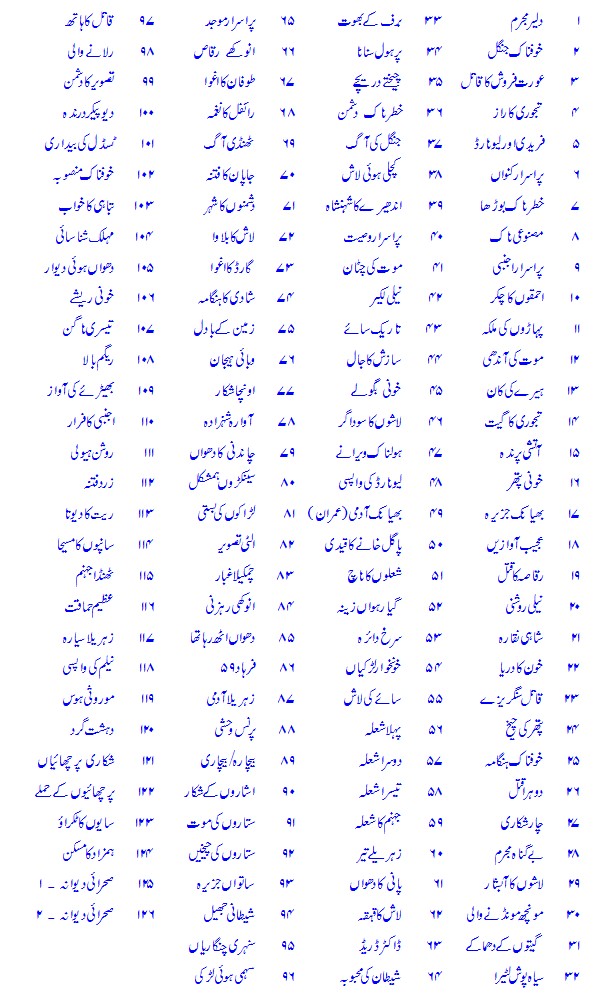 ۱ دلیر مجرم
۲ خوفناک جنگل
۳ عورت فروش کا قاتل
۴ تجوری کا راز
۵ فریدی اور لیونارڈ
۶ پراسرار کنواں
۷ خطرناک بوڑھا
۸ مصنوعی ناک
۹ پراسرار اجنبی
۱۰ احمقوں کا چکر
۱۱ پہاڑوں کی ملکہ
۱۲ موت کی آندھی
۱۳ ہیرے کی کان
۱۴ تجوری کا گیت
۱۵ آتشی پرندہ
۱۶ خونی پتھر
۱۷ بھیانک جزیرہ
۱۸ عجیب آوازیں
۱۹ رقاصہ کا قتل
۲۰ نیلی روشنی
۲۱ شاہی نقارہ
۲۲ خون کا دریا
۲۳ قاتل سنگریزے
۲۴ پتھر کی چیخ
۲۵ خوفناک ہنگامہ
۲۶ دوہرا قتل
۲۷ چار شکاری
۲۸ بے گناہ مجرم
۲۹ لاشوں کا آبشار
۳۰ مونچھ مونڈنے والی
۳۱ گیتوں کے دھماکے
۳۲ سیاہ پوش لٹیرا
۳۳ برف کے بھوت
۳۴ پرہول سناٹا
۳۵ چیختے دریچے
۳۶ خطرناک دشمن
۳۷ جنگل کی آگ
۳۸ کچلی ہوئی لاش
۳۹ اندھیرے کا شہنشاہ
۴۰ پراسرار وصیت
۴۱ موت کی چٹان
۴۲ نیلی لکیر
۴۳ تاریک سائے
۴۴ سازش کا جال
۴۵ خونی بگولے
۴۶ لاشوں کا سوداگر
۴۷ ہولناک ویرانے
۴۸ لیونارڈ کی واپسی
۴۹ بھیانک آدمی (عمران)
۵۰ پاگل خانے کا قیدی
۵۱ شعلوں کا ناچ
۵۲ گیارہواں زینہ
۵۳ سرخ دائرہ
۵۴ خونخوار لڑکیاں
۵۵ سائے کی لاش
۵۶ پہلا شعلہ
۵۷ دوسرا شعلہ
۵۸ تیسرا شعلہ
۵۹ جہنم کا شعلہ
۶۰ زہریلے تیر
۶۱ پانی کا دھواں
۶۲ لاش کا قہقہہ
۶۳ ڈاکٹر ڈریڈ
۶۴ شیطان کی محبوبہ
۶۵ پراسرار موجد
۶۶ انوکھے رقاص
۶۷ طوفان کا اغوا
۶۸ رائفل کا نغمہ
۶۹ ٹھنڈی آگ
۷۰ جاپان کا فتنہ
۷۱ دشمنوں کا شہر
۷۲ لاش کا بلاوا
۷۳ گارڈ کا اغوا
۷۴ شادی کا ہنگامہ
۷۵ زمین کے بادل
۷۶ وبائی ہیجان
۷۷ اونچا شکار
۷۸ آوارہ شہزادہ
۷۹ چاندنی کا دھواں
۸۰ سینکڑوں ہمشکل
۸۱ لڑاکوں کی بستی
۸۲ الٹی تصویر
۸۳ چمکیلا غبار
۸۴ انوکھی رہزنی
۸۵ دھواں اٹھ رہا تھا
۸۶ فرہاد ۵۹
۸۷ زہریلا آدمی
۸۸ پرنس وحشی
۸۹ بیچارہ/بیچاری
۹۰ اشاروں کے شکار
۹۱ ستاروں کی موت
۹۲ ستاروں کی چیخیں
۹۳ ساتواں جزیرہ
۹۴ شیطانی جھیل
۹۵ سنہری چنگاریاں
۹۶ سہمی ہوئی لڑکی
۹۷ قاتل کا ہاتھ
۹۸ رلانے والی
۹۹ تصویر کا دشمن
۱۰۰ دیو پیکر درندہ
۱۰۱ ٹسڈل کی بیداری
۱۰۲ خوفناک منصوبہ
۱۰۳ تباہی کا خواب
۱۰۴ مہلک شناسائی
۱۰۵ دھواں ہوئی دیوار
۱۰۶ خونی ریشے
۱۰۷ تیسری ناگن
۱۰۸ ریگم بالا
۱۰۹ بھیڑئے کی آواز
۱۱۰ اجنبی کا فرار
۱۱۱ روشن ہیولی
۱۱۲ زرد فتنہ
۱۱۳ ریت کا دیوتا
۱۱۴ سانپوں کا مسیحا
۱۱۵ ٹھنڈا جہنم
۱۱۶ عظیم حماقت
۱۱۷ زہریلا سیارہ
۱۱۸ نیلم کی واپسی
۱۱۹ موروثی ہوس
۱۲۰ دہشت گرد
۱۲۱ شکاری پرچھائیاں
۱۲۲ پرچھائیوں کے حملے
۱۲۳ سایوں کا ٹکراؤ
۱۲۴ ہمزاد کا مسکن
۱۲۵ صحرائی دیوانہ - ۱
۱۲۶ صحرائی دیوانہ - ۲